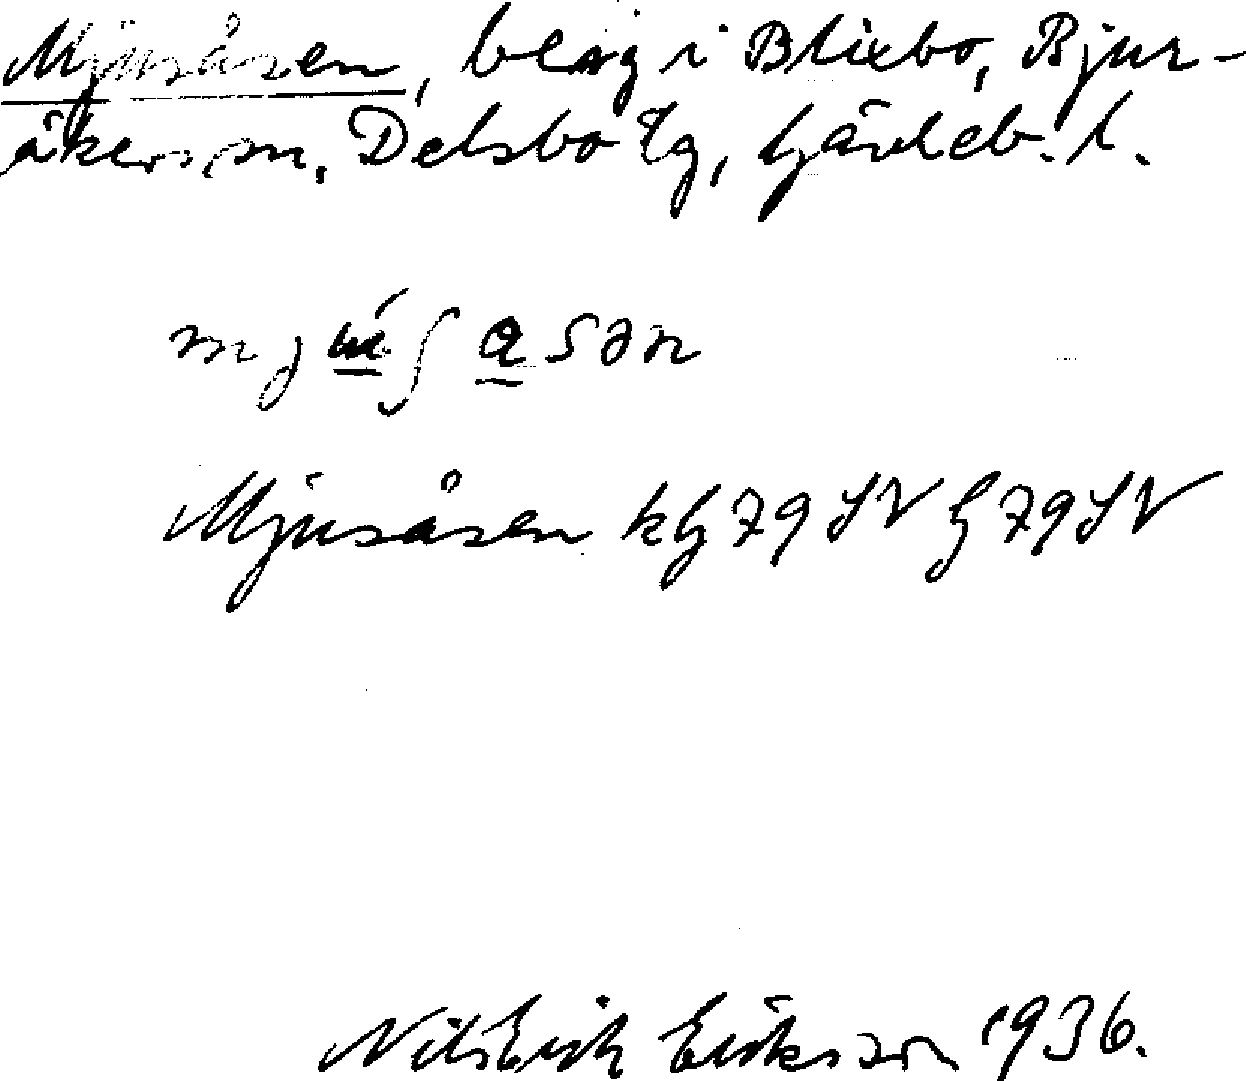 Mjusåsen, berg i Blixbo, Bjur-
åkers sn, Delsbo tg, Gävleb. l.
Mjusåsen kG 79 SV G 79 SV
Nils Erik Eriksson 1936.